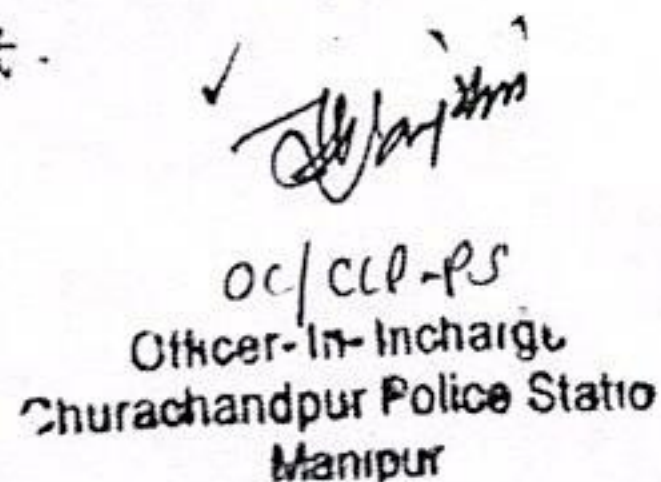 OC/CCP-PS
Officer-In-Incharge
Churachandpur Police Statio
Manipur